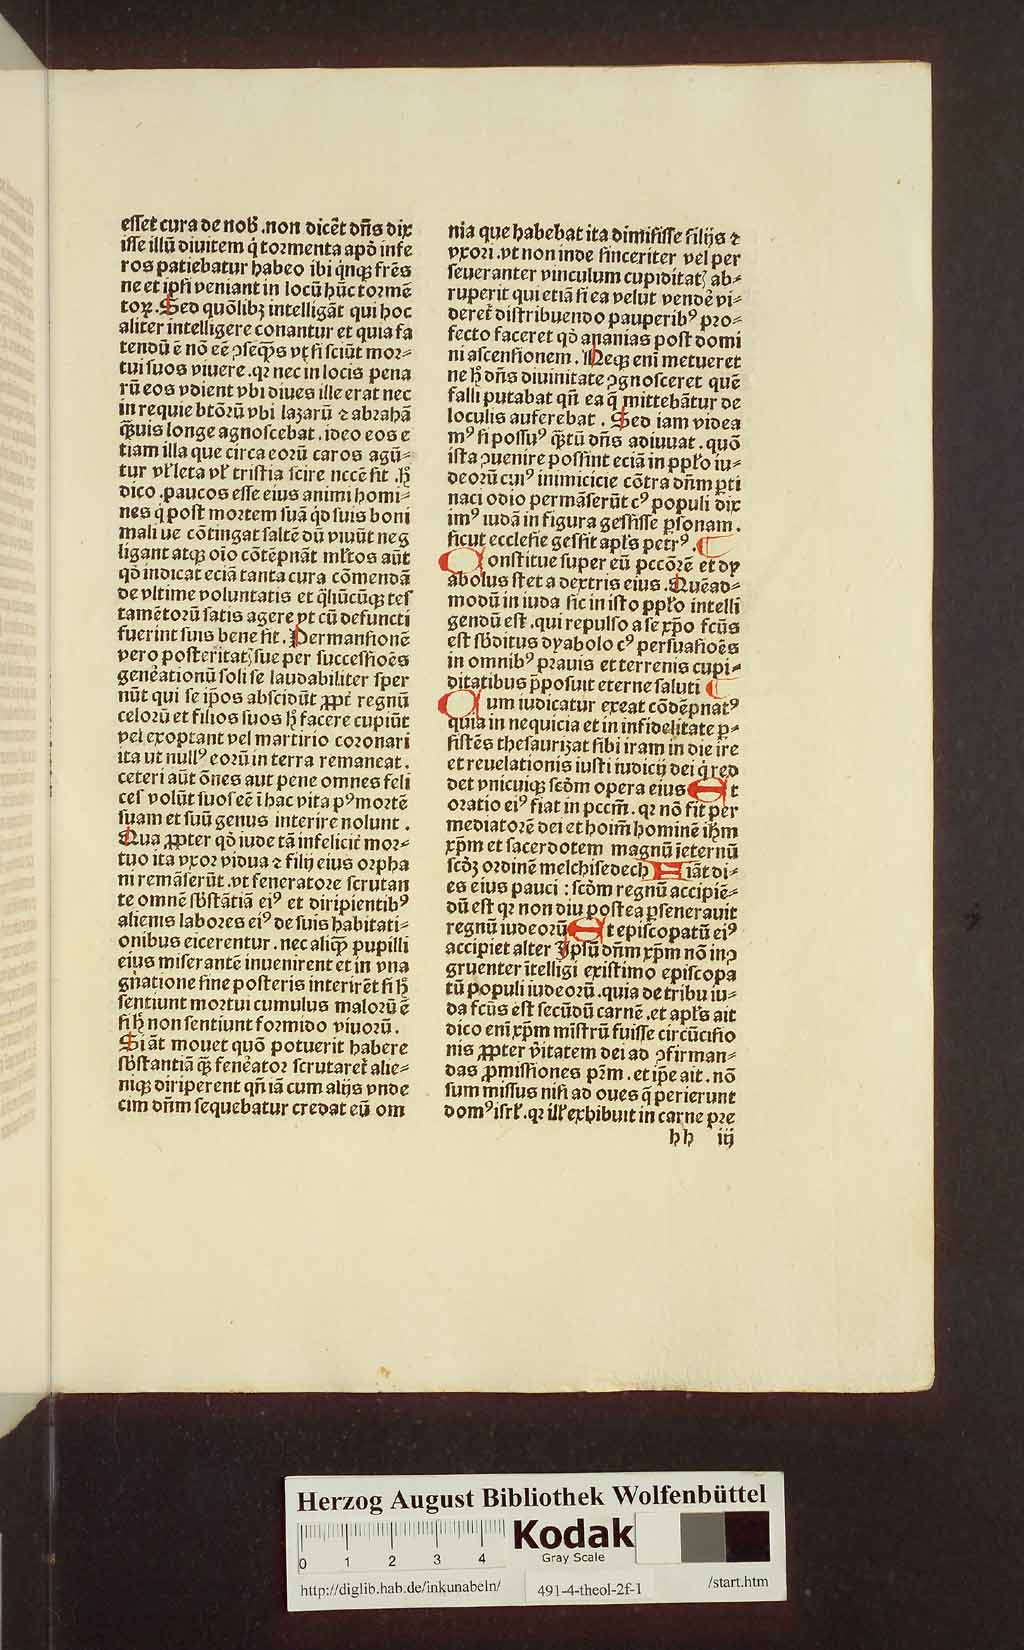 esset cura de nob̃ .non dicẽt dñs dix
isse illũ diuitem q̇ tormenta apḋ infe
ros patiebatur habeo ibi q̇nqꝫ frẽs
ne et ipsi veniant in locũ hũc tormẽ
toꝝ. Sed quõlibꝫ intelligãt qui hoc
aliter intelligere conantur et quia fa
tendũ ẽ nõ eẽ ꝯseqẽs vt si sciũt mor-
tui suos viuere .qꝛ nec in locis pena
rũ eos vdient vbi diues ille erat nec
in requie btõrũ vbi lazarũ ⁊ abrahã
q̃ꝫuis longe agnoscebat .ideo eos e
tiam illa que circa eorũ caros agũ-
tur vl̃ leta vl̃ tristia scire nccẽ sit .h̃
dico .paucos esse eius animi homi-
nes q̇ post mortem suã qḋ suis boni
mali ue cõtingat saltẽ dũ viuũt neg
ligant atqꝫ oĩo cõtẽpnãt ml̃tos aũt
qḋ indicat eciã tanta cura cõmendã
de vltime voluntatis et q̃liũcũqꝫ tes
tamẽtorũ satis agere vt cũ defuncti
fuerint suis bene sit . Permansionẽ
vero posteritatꝭ sue per successioẽs
genẽationũ soli se laudabiliter sper
nũt qui se ip̃os abscidũt ꝓpt̃ regnũ
celorũ et filios suos h̃ facere cupiũt
vel exoptant vel martirio coronari
ita ut nullꝰ eorũ in terra remaneat .
ceteri aũt õnes aut pene omnes feli
ces volũt suos eẽ ĩ hac vita pꝰ mortẽ
suam et suũ genus interire nolunt .
Qua ꝓpter qḋ iude tã infelicit̃ mor-
tuo ita vxor vidua ⁊ filij eius orpha
ni remãserũt .vt feneratore scrutan
te omnẽ sb̃stãtiã eiꝰ et diripientibꝰ
alienis labores eiꝰ de suis habitati-
onibus eicerentur .nec aliq̃ꝫ pupilli
eius miserantẽ inuenirent et in vna
gñatione sine posteris interirẽt si h̃
sentiunt mortui cumulus malorũ ẽ
si h̃ non sentiunt formido viuorũ .
Si ãt mouet quõ potuerit habere
sb̃stantiã q̃ꝫ fenẽator scrutaret̃ alie-
niqꝫ diriperent qñ iã cum alijs vnde
cim dñm sequebatur credat eũ om
nia que habebat ita dimisisse filijs ⁊
vxori .vt non inde sinceriter vel per
seueranter vinculum cupiditatꝭ ab-
ruperit qui etiã si ea velut vendẽ vi-
deret̃ distribuendo pauperibꝰ pro-
fecto faceret qḋ ananias post domi
ni ascensionem . Neqꝫ enĩ metueret
ne h̃ dñs diuinitate ꝯgnosceret quẽ
falli putabat qñ ea q̃ mittebãtur de
loculis auferebat . Sed iam videa
mꝰ si possuꝰ q̃tũ dñs adiuuat .quõ
ista ꝯuenire possint eciã in ppl̃o iu-
deorũ cuiꝰ inimicicie cõtra dñm ꝑti
naci odio permãserũt cꝰ populi dix
imꝰ iudã in figura gessisse ꝑsonam .
sicut ecclesie gessit apl̃s petrꝰ .
Constitue super eũ pccõrẽ et dy
abolus stet a dextris eius . Quẽad-
modũ in iuda sic in isto ppl̃o intelli
gendũ est .qui repulso a se xp̃o fcũs
est sb̃ditus dyabolo cꝰ persuasioẽs
in omnibꝰ prauis et terrenis cupi-
ditatibus p̃posuit eterne saluti
Cum iudicatur exeat cõdẽpnatꝰ
quia in nequicia et in infidelitate ꝑ-
sistẽs thesaurizat sibi iram in die ire
et reuelationis iusti iudicij dei q̇ red
det vnicuiqꝫ scḋm opera eius Et
oratio eiꝰ fiat in pccm̃ .qꝛ nõ fit per
mediatorẽ dei et hoim̃ hominẽ ih̃m
xp̃m et sacerdotem magnũ ĩeternũ
scḋꝫ ordinẽ melchisedech Fiãt di-
es eius pauci : scḋm regnũ accipiẽ-
dũ est qꝛ non diu postea ꝑseuerauit
regnũ iudeorũ Et episcopatũ eiꝰ
accipiet alter Ipsũ dñm xp̃m nõ inꝯ
gruenter ĩtelligi existimo episcopa
tũ populi iudeorũ .quia de tribu iu-
da fcũs est secũdũ carnẽ .et apl̃s ait
dico enĩ xp̃m mĩstrũ fuisse circũcisio
nis ꝓpter v̾itatem dei ad ꝯfirman-
das ꝓmissiones pr̃m .et ip̃e ait .nõ
sum missus nisi ad oues q̃ perierunt
domꝰ isrl̃ .qꝛ ill̃ exhibuit in carne pre
hh iij
Herzog August Bibliothek Wolfenbüttel
0 1 2 3 4
Kodak
Gray Scale
http://diglib.hab.de/inkunabeln/
491-4-theol-2f-1
/start.htm